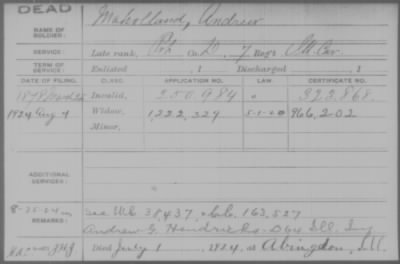 DEAD
NAME OF SOLDIER: Maholland, Andrew
SERVICE: Late rank, Prt Co. D, 7 Reg't Ill Cav.
TERM OF SERVICE: Enlisted , 1 Discharged , 1
DATE OF FILING. CLASS. APPLICATION NO. LAW. CERTIFICATE NO.
1878 Invalid, 250,984 " 323,868.
1924 Aug 4 Widow, 1,222,329 5-1-20 966,202
Minor,
ADDITIONAL SERVICES:
8-25-24
REMARKS: see WC 38,437, 163,527
Andrew G. Hendricks - D 64 Ill. Inf
Died July 1, 1924, at Abingdon, Ill.